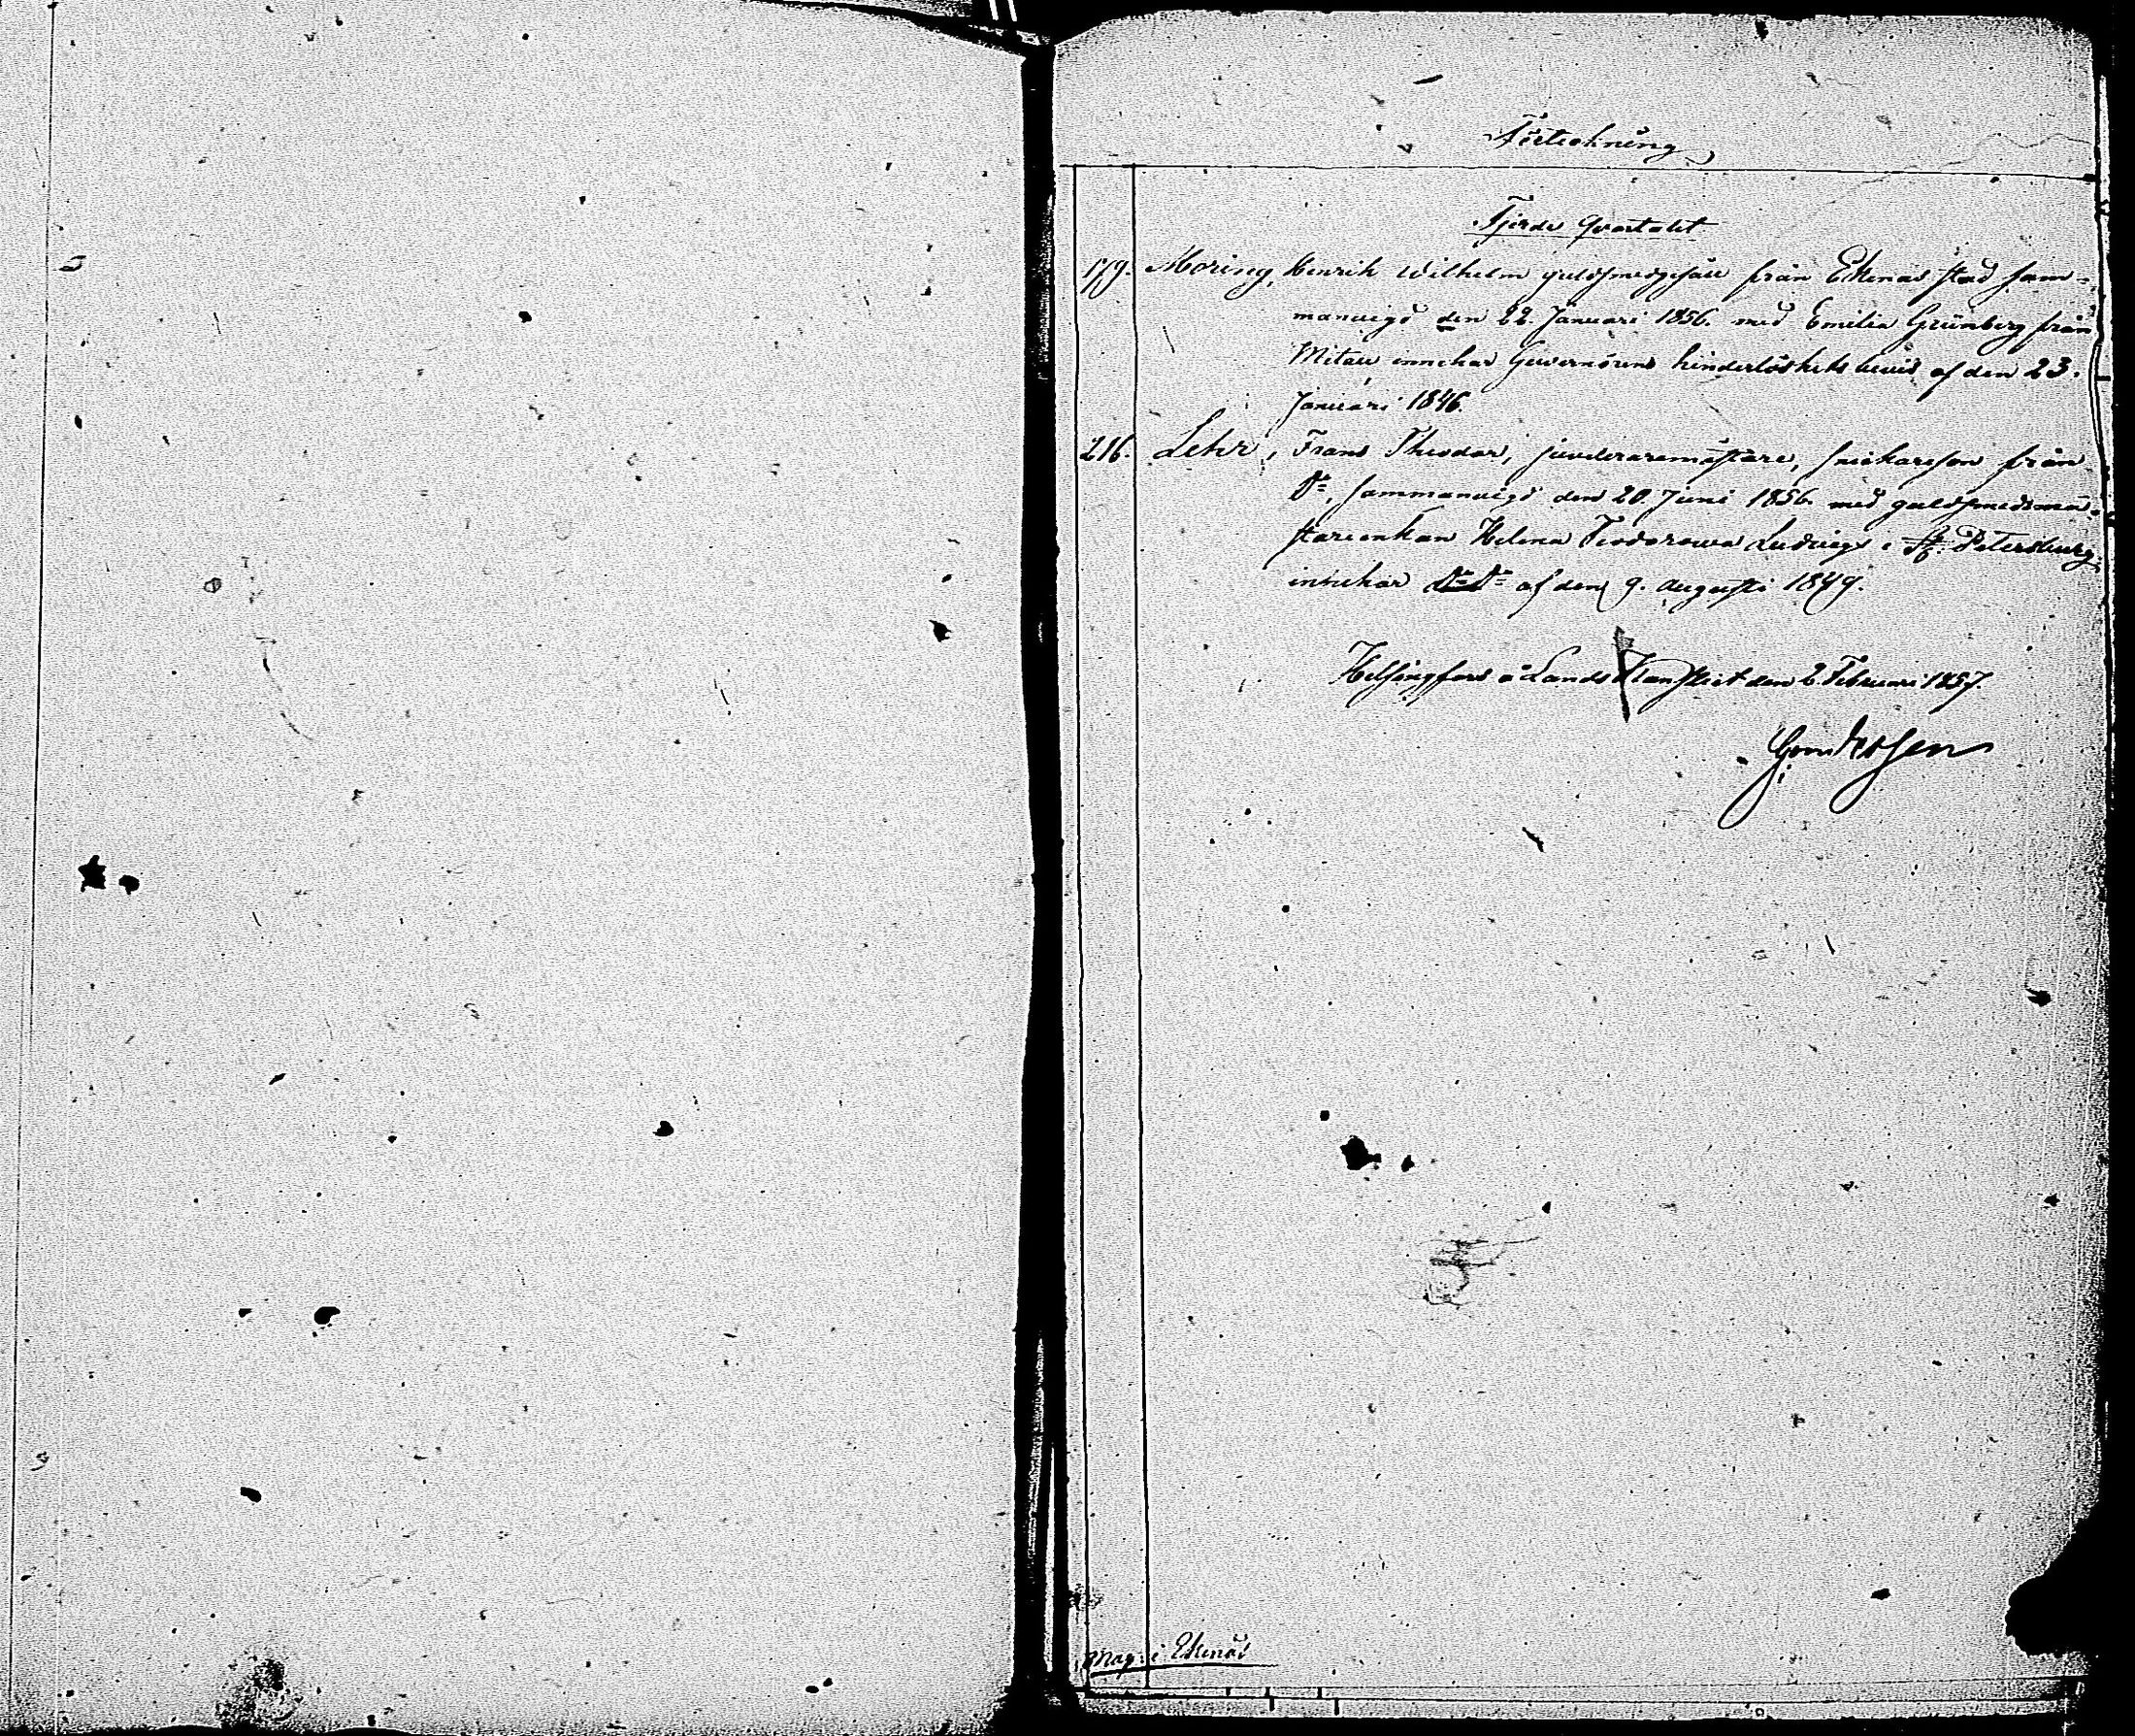 Förteckning
Fjerde Qvartalet
179. Moring, Henrik Wilhelm guldsmedgesäll från Ekenäs stad sam-
manvigd den 22. Januari 1856. med Emilia Grünberg från
Mitau innehar Guvernörens hinderlöshets bevis af den 23.
Januari 1846.
216. Lehr, Frans Theodor, juveleraremästare, snickareson från
D:o, sammanvigd den 20. Juni 1856. med guldsmedsmä-
stareenkan Helena Feodorowa Ludvigs i St: Petersburg
innehar D:o D:o af den 9. Augusti 1849.
Helsingfors å Lands Kansliet den 2. Februari 1857.
Mag: i Ekenäs